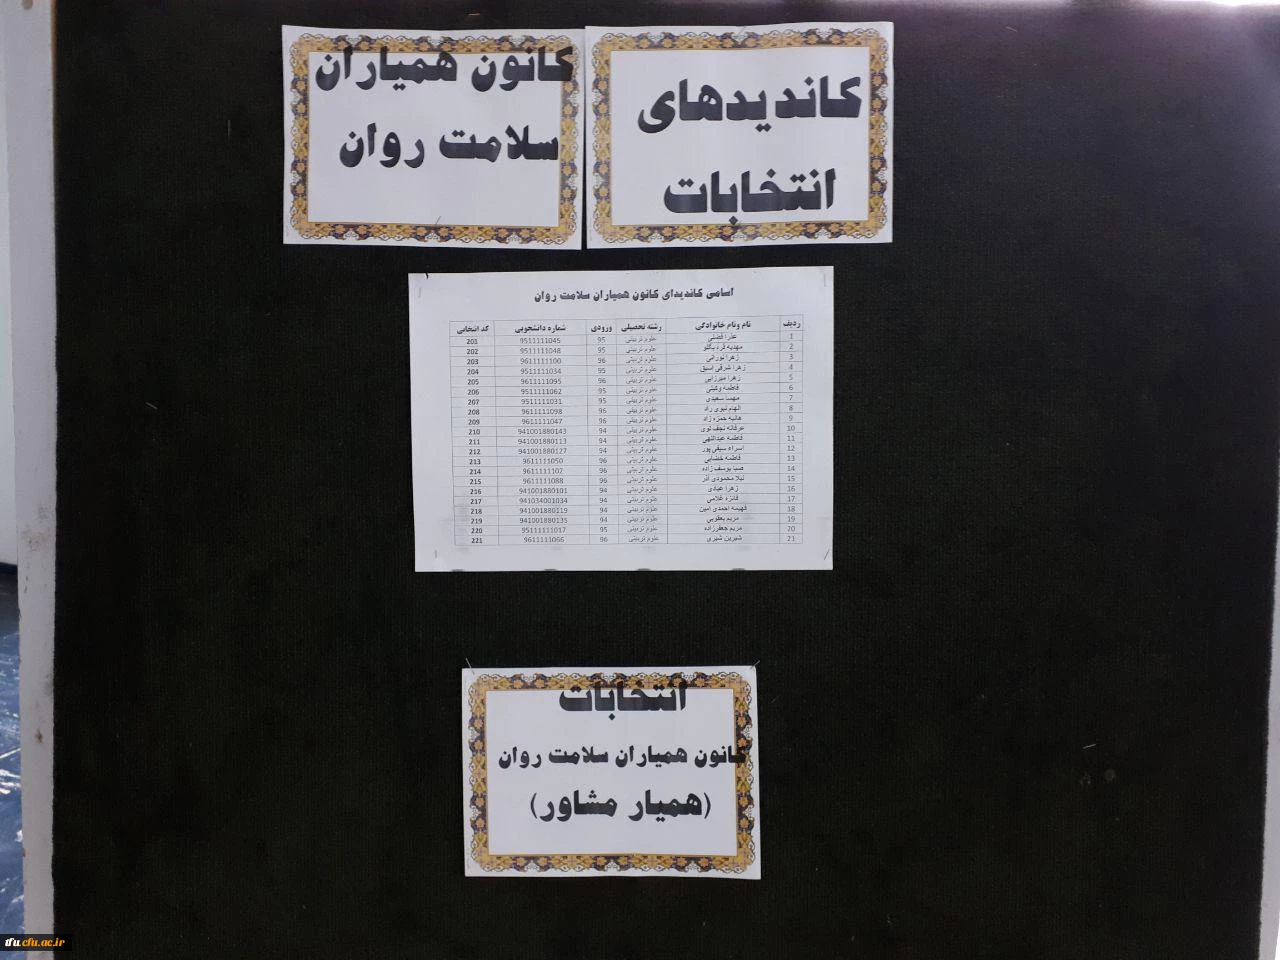 کاندیدهای
انتخابات
کانون همیاران
سلامت روان
اسامی کاندیدای کانون همیاران سلامت روان
ردیف نام ونام خانوادگی رشته تحصیلی ورودی شماره دانشجویی کد انتخابی
1 عذرا فضلی علوم تربیتی 95 9511111045 201
2 مهدیه قره باغلو علوم تربیتی 95 9511111048 202
3 زهرا نورانی علوم تربیتی 96 9611111100 203
4 زهرا شرقی اسبق علوم تربیتی 95 9511111034 204
5 زهرا میرزایی علوم تربیتی 96 9611111095 205
6 فاطمه وکیلی علوم تربیتی 95 9511111062 206
7 مهسا سعیدی علوم تربیتی 95 9511111031 207
8 الهام نبوی راد علوم تربیتی 96 9611111098 208
9 هانیه حمزه زاد علوم تربیتی 96 9611111047 209
10 عرفانه نجف لوی علوم تربیتی 94 941001880143 210
11 فاطمه عبداللهی علوم تربیتی 94 941001880113 211
12 اسراء سیفی پور علوم تربیتی 94 941001880127 212
13 فاطمه خضابی علوم تربیتی 96 9611111050 213
14 صبا یوسف زاده علوم تربیتی 96 9611111102 214
15 لیلا محمودی آذر علوم تربیتی 96 9611111088 215
16 زهرا عبادی علوم تربیتی 94 941001880101 216
17 فائزه غلامی علوم تربیتی 94 941034001034 217
18 فهیمه احمدی امین علوم تربیتی 94 941001880119 218
19 مریم یعقوبی علوم تربیتی 94 941001880135 219
20 مریم جعفرزاده علوم تربیتی 95 95111111017 220
21 شیرین شیری علوم تربیتی 96 9611111066 221
انتخابات
کانون همیاران سلامت روان
(همیار مشاور)
tfu.cfu.ac.ir